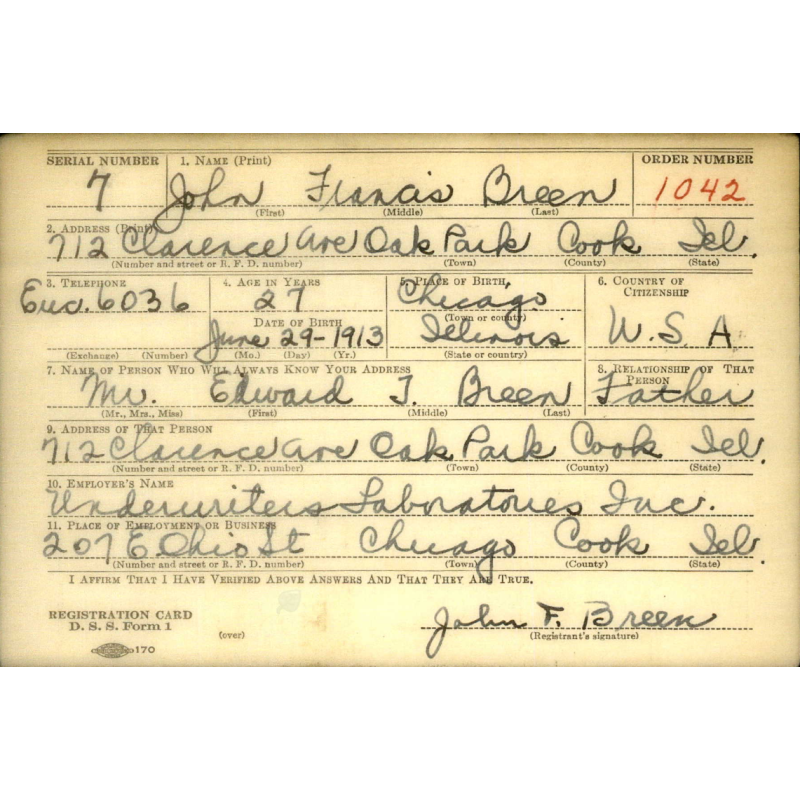 SERIAL NUMBER 1. NAME (Print) ORDER NUMBER
7 John Francis Breen 1042
(First) (Middle) (Last)
2. ADDRESS (Print)
712 Clarence Ave Oak Park Cook Ill.
(Number and street or R. F. D. number) (Town) (County) (State)
3. TELEPHONE 4. AGE IN YEARS 5. PLACE OF BIRTH 6. COUNTRY OF CITIZENSHIP
Euc. 6036 27 Chicago
DATE OF BIRTH (Town or county)
June 29-1913 Illinois U. S. A.
(Exchange) (Number) (Mo.) (Day) (Yr.) (State or country)
7. NAME OF PERSON WHO WILL ALWAYS KNOW YOUR ADDRESS 8. RELATIONSHIP OF THAT PERSON
Mr. Edward J. Breen Father
(Mr., Mrs., Miss) (First) (Middle) (Last)
9. ADDRESS OF THAT PERSON
712 Clarence Ave Oak Park Cook Ill.
(Number and street or R. F. D. number) (Town) (County) (State)
10. EMPLOYER'S NAME
Underwriters Laboratories Inc.
11. PLACE OF EMPLOYMENT OR BUSINESS
207 E. Ohio St Chicago Cook Ill.
(Number and street or R. F. D. number) (Town) (County) (State)
I AFFIRM THAT I HAVE VERIFIED ABOVE ANSWERS AND THAT THEY ARE TRUE.
REGISTRATION CARD
D. S. S. Form 1 John F. Breen
(over) (Registrant's signature)
170